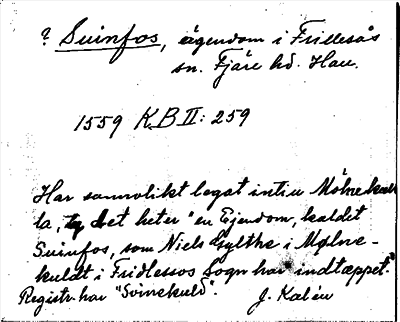 ? Svinfos, ägendom i Frillesås
sn. Fjäre hd. Hall.
1559 K.B II: 259
Har sannolikt legat intill Mølnekul-
la, ty det heter "en Ejendom, kaldet
Svinfos, som Niels Gylthe i Mølne-
kuldt i Fridlessos Sogn har indtæppet."
Registr. har "Svinekuld".
J. Kalén